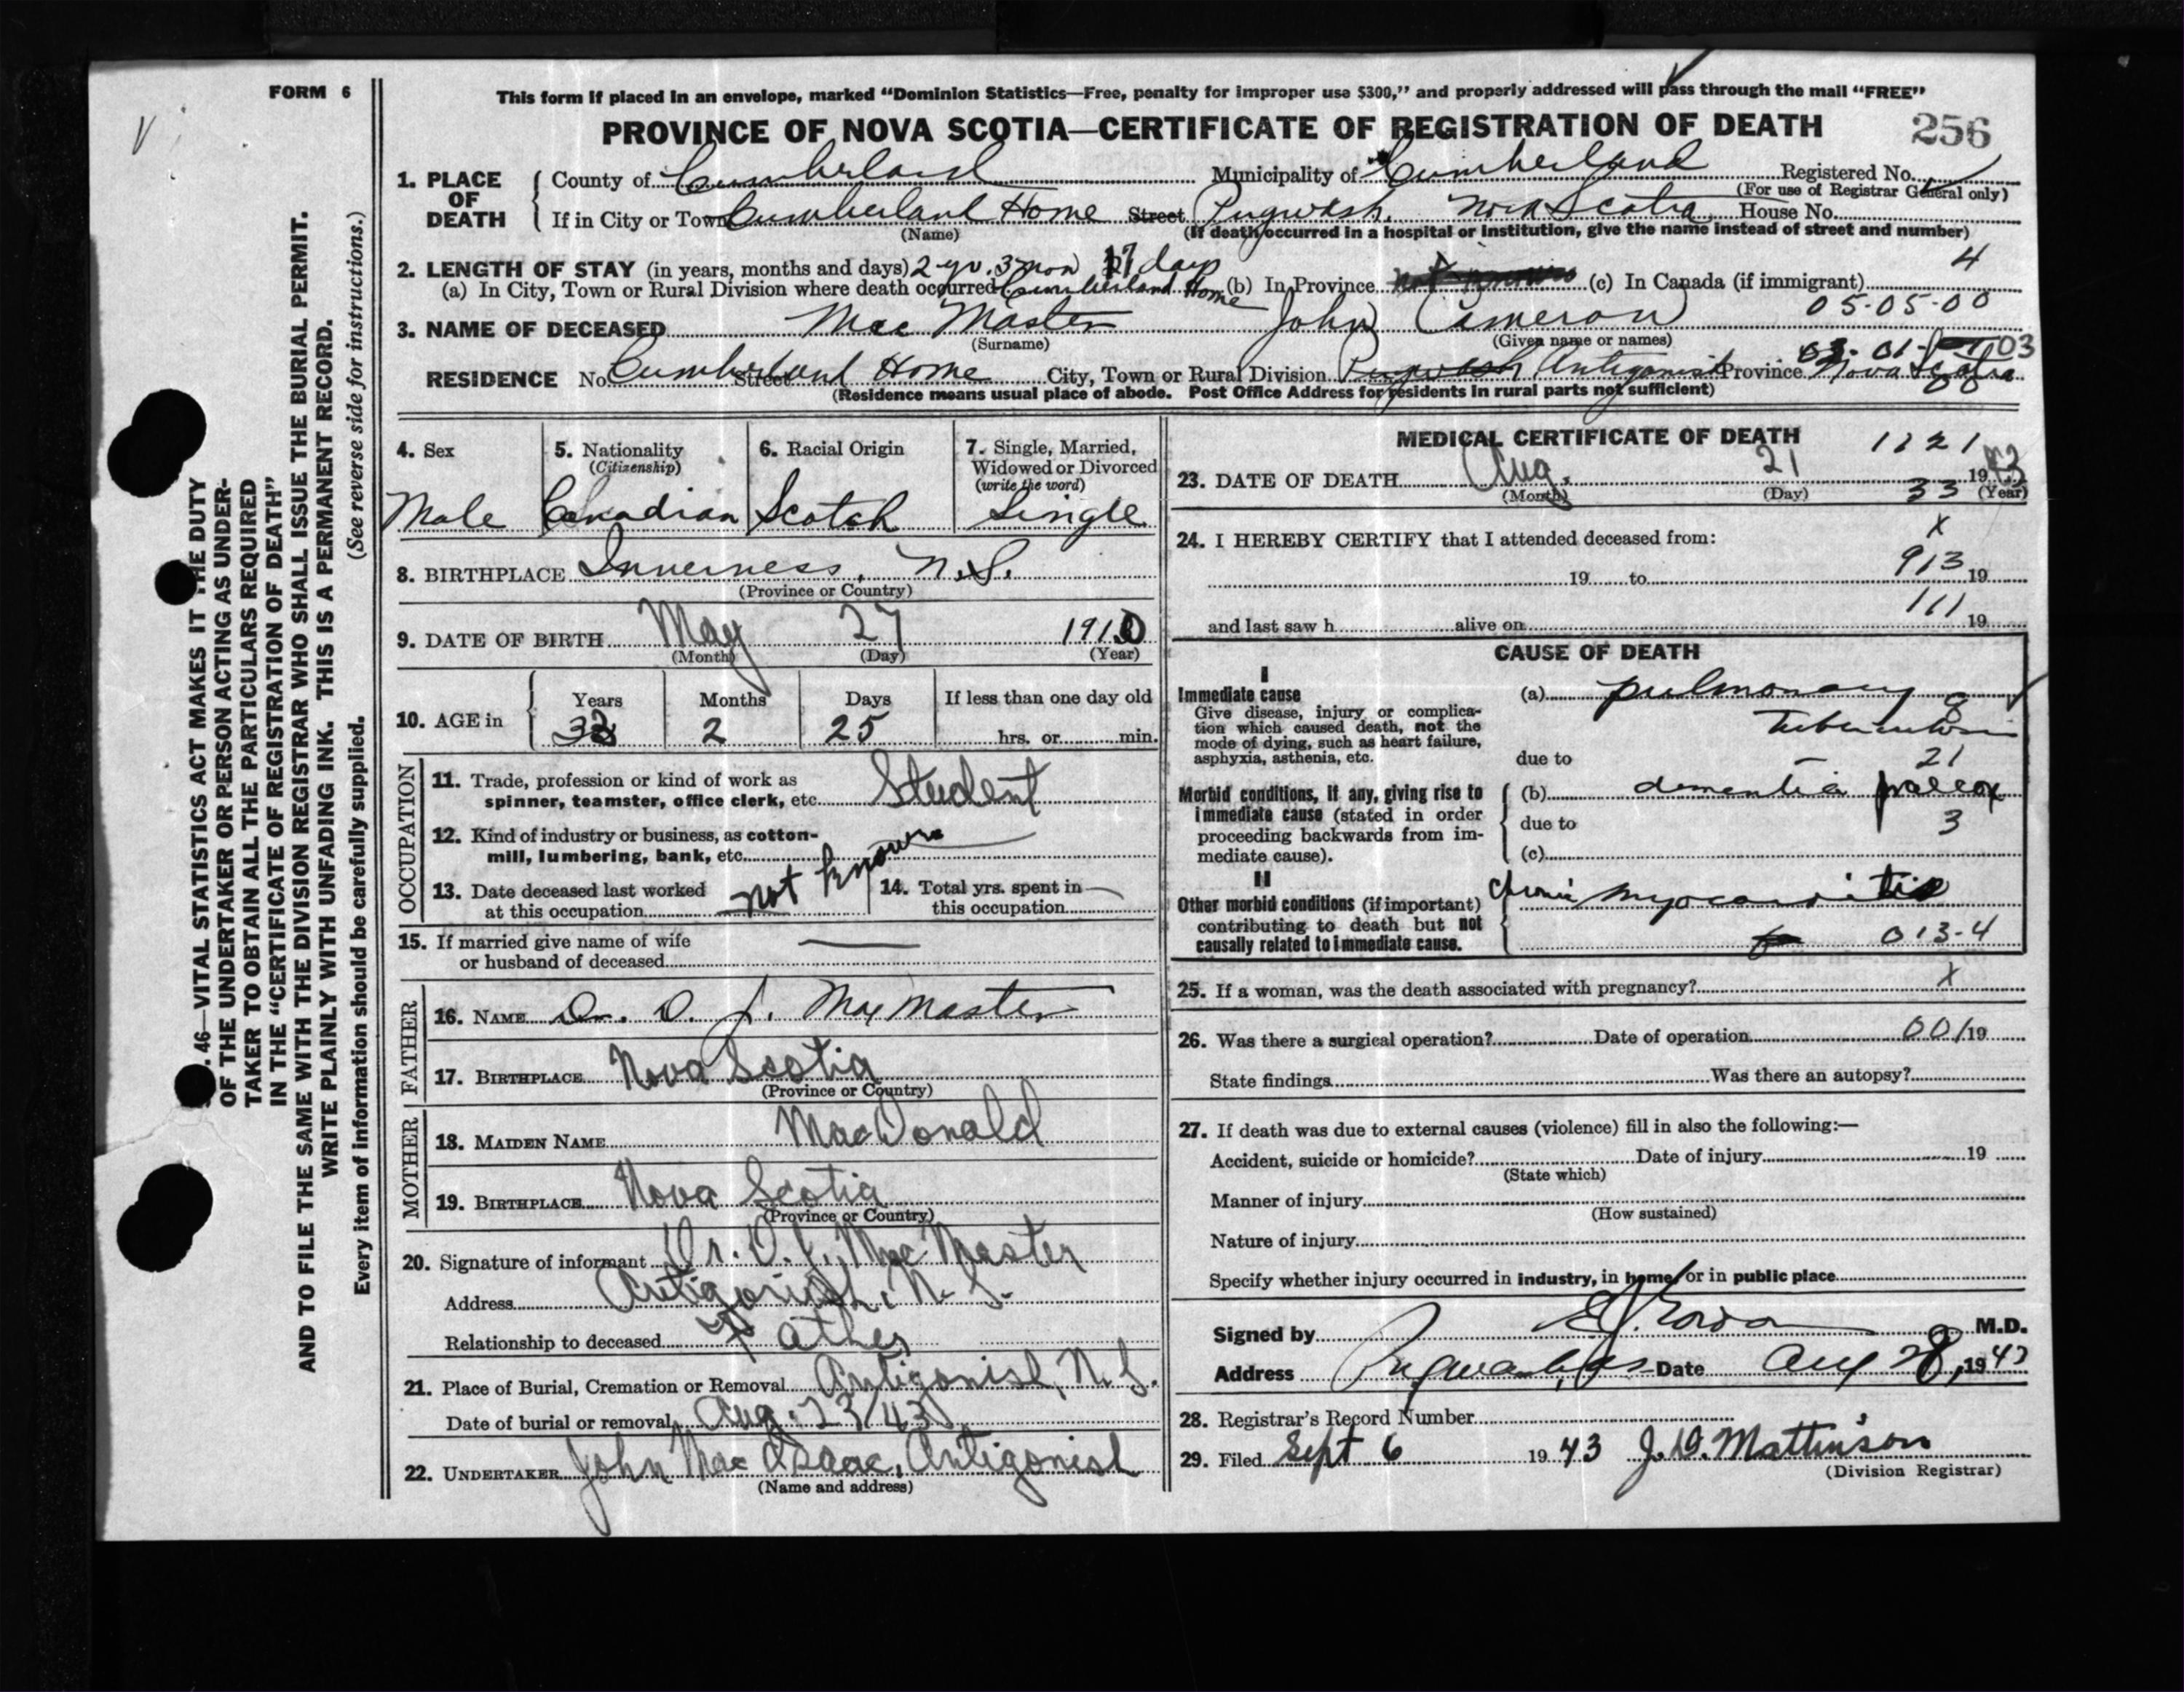 FORM 6
This form if placed in an envelope, marked “Dominion Statistics—Free, penalty for improper use $300,” and properly addressed will pass through the mail “FREE”
PROVINCE OF NOVA SCOTIA—CERTIFICATE OF REGISTRATION OF DEATH
256
1. PLACE OF DEATH
County of Cumberland Municipality of Cumberland Registered No.
(For use of Registrar General only)
If in City or Town Cumberland Home Street Pugwash, Nova Scotia House No.
(Name) (If death occurred in a hospital or institution, give the name instead of street and number)
2. LENGTH OF STAY (in years, months and days) 2 yr. 3 mon 17 days 4
(a) In City, Town or Rural Division where death occurred Cumberland Home (b) In Province (c) In Canada (if immigrant)
05-05-00
3. NAME OF DECEASED Mac Master John Cameron
(Surname) (Given name or names)
03
RESIDENCE No. Cumberland Home Street City, Town or Rural Division Pugwash Antigonish Province Nova Scotia
00
(Residence means usual place of abode. Post Office Address for residents in rural parts not sufficient)
4. Sex 5. Nationality (Citizenship) 6. Racial Origin 7. Single, Married, Widowed or Divorced (write the word)
Male Canadian Scotch Single
8. BIRTHPLACE Inverness, N.S.
(Province or Country)
9. DATE OF BIRTH May 27 1910
(Month) (Day) (Year)
10. AGE in Years Months Days If less than one day old
33 2 25 hrs. or min.
OCCUPATION
11. Trade, profession or kind of work as
spinner, teamster, office clerk, etc. Student
12. Kind of industry or business, as cotton-
mill, lumbering, bank, etc.
13. Date deceased last worked
at this occupation not known
14. Total yrs. spent in
this occupation
15. If married give name of wife
or husband of deceased
FATHER
16. NAME Dr. D. J. MacMaster
17. BIRTHPLACE Nova Scotia
(Province or Country)
MOTHER
18. MAIDEN NAME MacDonald
19. BIRTHPLACE Nova Scotia
(Province or Country)
20. Signature of informant Dr. D. J. MacMaster
Address Antigonish, N. S.
Relationship to deceased Father
21. Place of Burial, Cremation or Removal Antigonish, N. S.
Date of burial or removal Aug. 23/43
22. UNDERTAKER John Mac Isaac, Antigonish
(Name and address)
MEDICAL CERTIFICATE OF DEATH 1121
23. DATE OF DEATH Aug. 21 1943
(Month) (Day) 33 (Year)
24. I HEREBY CERTIFY that I attended deceased from: x
19 to 913 19
111
and last saw h alive on 19
CAUSE OF DEATH
I
Immediate cause
Give disease, injury or complica-
tion which caused death, not the
mode of dying, such as heart failure,
asphyxia, asthenia, etc.
(a) pulmonary
Tuberculosis
due to 21
Morbid conditions, if any, giving rise to
immediate cause (stated in order
proceeding backwards from im-
mediate cause).
(b) dementia praecox
due to 3
(c)
II
Other morbid conditions (if important)
contributing to death but not
causally related to immediate cause.
Chronic myocarditis
013-4
25. If a woman, was the death associated with pregnancy? x
26. Was there a surgical operation? Date of operation 001 19
State findings Was there an autopsy?
27. If death was due to external causes (violence) fill in also the following:—
Accident, suicide or homicide? Date of injury 19
(State which)
Manner of injury
(How sustained)
Nature of injury
Specify whether injury occurred in industry, in home, or in public place
Signed by M.D.
Address Pugwash, NS Date Aug 28, 1943
28. Registrar's Record Number
29. Filed Sept 6 1943 J. D. Mattinson
(Division Registrar)
. 46—VITAL STATISTICS ACT MAKES IT THE DUTY
OF THE UNDERTAKER OR PERSON ACTING AS UNDER-
TAKER TO OBTAIN ALL THE PARTICULARS REQUIRED
IN THE “CERTIFICATE OF REGISTRATION OF DEATH”
AND TO FILE THE SAME WITH THE DIVISION REGISTRAR WHO SHALL ISSUE THE BURIAL PERMIT.
WRITE PLAINLY WITH UNFADING INK. THIS IS A PERMANENT RECORD.
Every item of information should be carefully supplied. (See reverse side for instructions.)